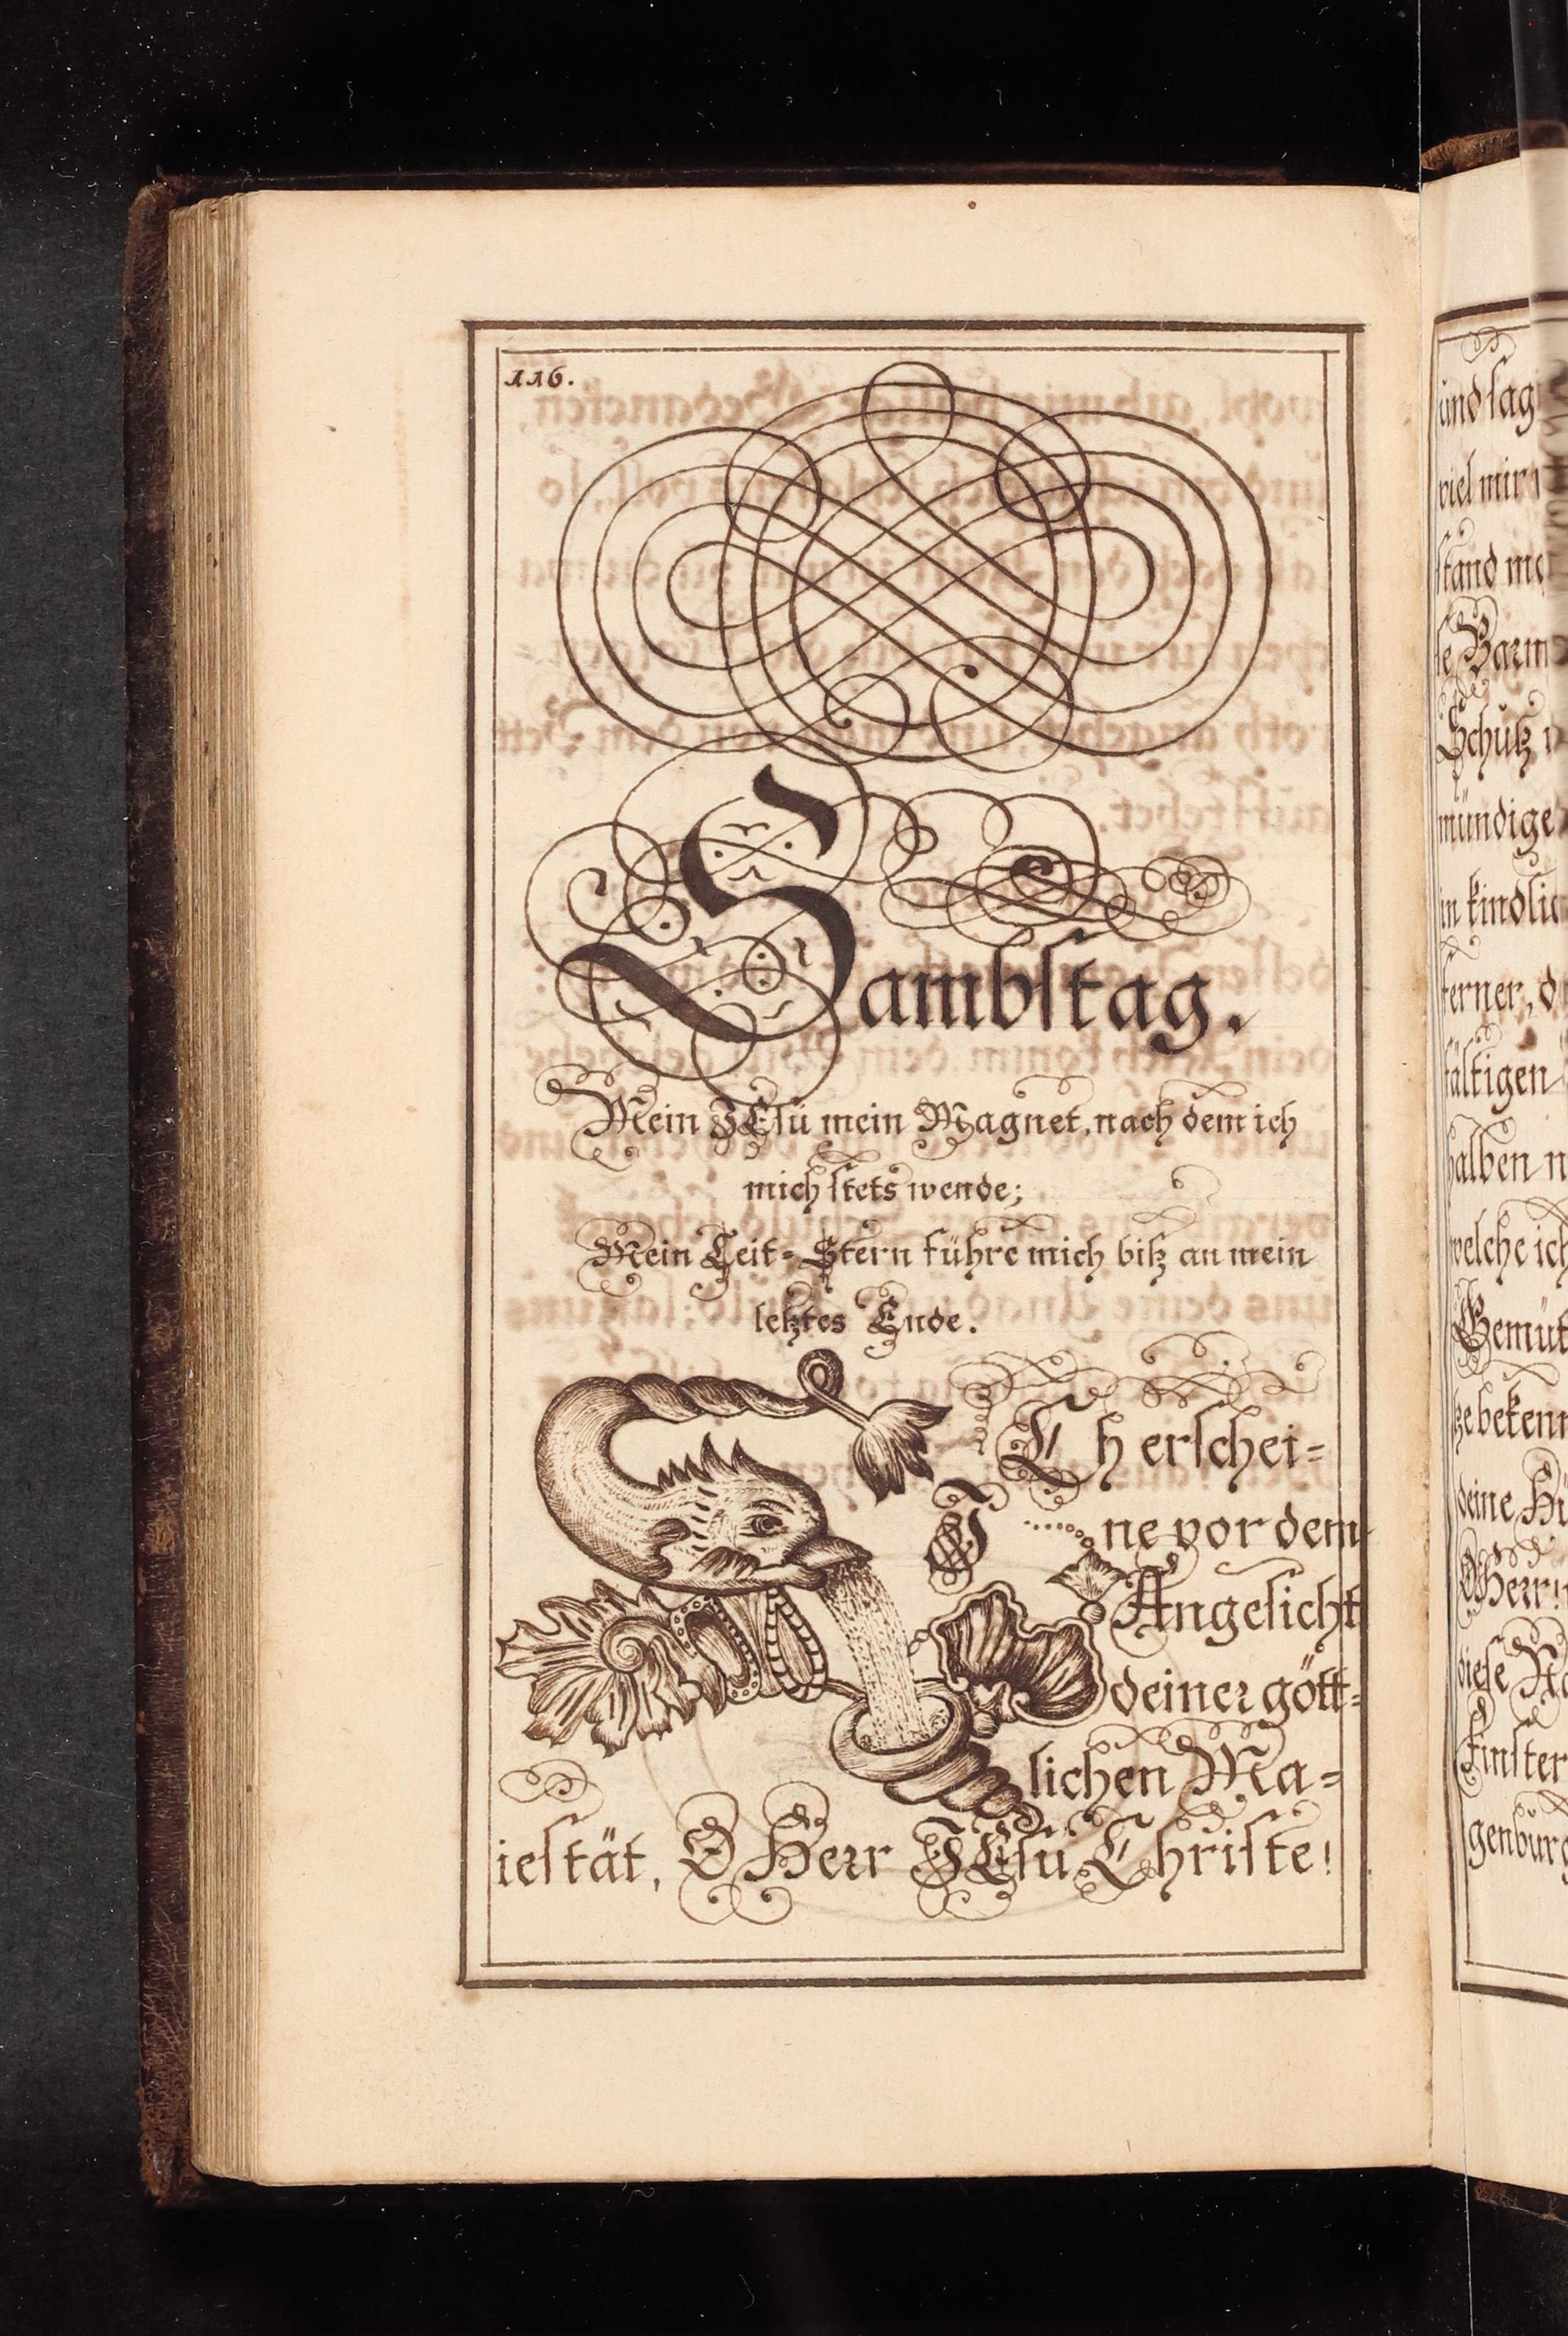 116.
Sambſtag.
Mein JEſu mein Magnet, nach dem ich
mich ſtets wende;
Mein Leit=Stern führe mich biſz an mein
letztes Ende.
JCh erſchei=
ne vor dem
Angeſicht
deiner gött=
lichen Ma=
ieſtät, O Herr JEſu Chriſte!
und ſag
viel mir
ſtand me
ſe Barm
Schutz
mündige
in kindlic
ferner, d
fältigen
halben n
welche ich
Gemüt
tze bekenn
deine Hü
OHerr
dieſe Na
Finſter
genbürg